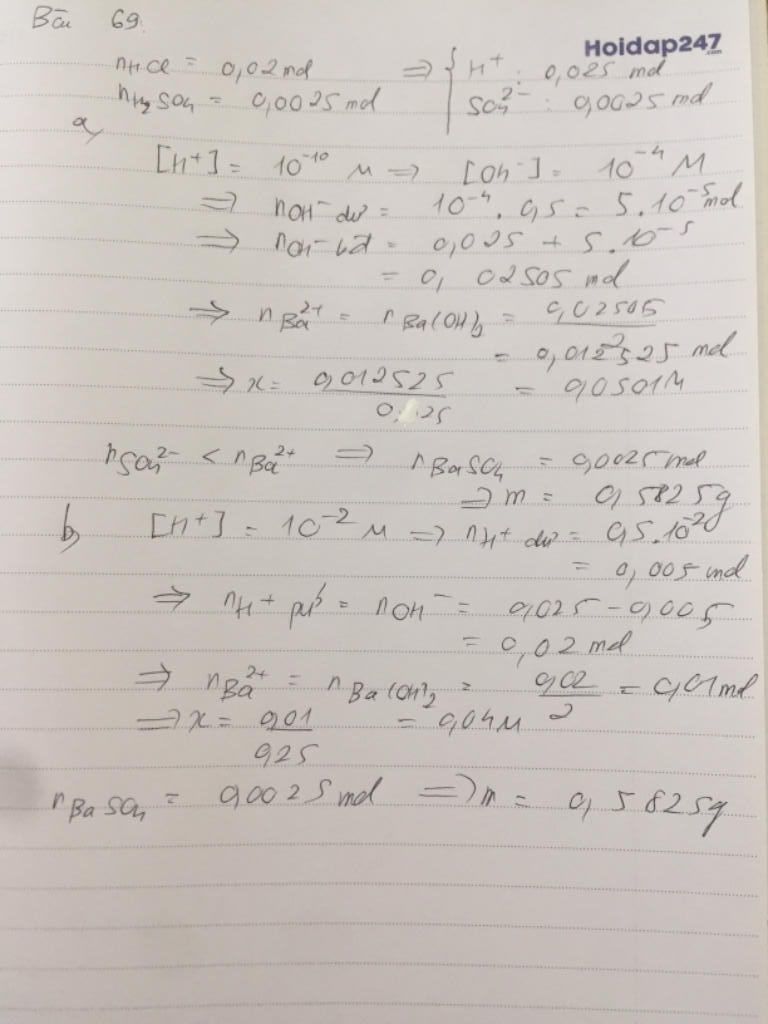 Bài 69.
Hoidap247
.com
nHCl = 0,02 mol ⇒ { H⁺ : 0,025 mol
nH₂SO₄ = 0,0025 mol SO₄²⁻ : 0,0025 mol
a,
[H⁺] = 10⁻¹⁰ M ⇒ [OH⁻] = 10⁻⁴ M
⇒ nOH⁻ dư = 10⁻⁴ . 0,5 = 5.10⁻⁵ mol
⇒ nOH⁻ bđ = 0,025 + 5.10⁻⁵
= 0,02505 mol
⇒ nBa²⁺ = nBa(OH)₂ = 0,02505 / 2
= 0,012525 mol
⇒ x = 0,012525 / 0,25 = 0,0501 M
nSO₄²⁻ < nBa²⁺ ⇒ nBaSO₄ = 0,0025 mol
⇒ m = 0,5825g
b, [H⁺] = 10⁻² M ⇒ nH⁺ dư = 0,5.10⁻²
= 0,005 mol
⇒ nH⁺ pứ = nOH⁻ = 0,025 - 0,005
= 0,02 mol
⇒ nBa²⁺ = nBa(OH)₂ = 0,02 / 2 = 0,01 mol
⇒ x = 0,01 / 0,25 = 0,04 M
nBaSO₄ = 0,0025 mol ⇒ m = 0,5825g